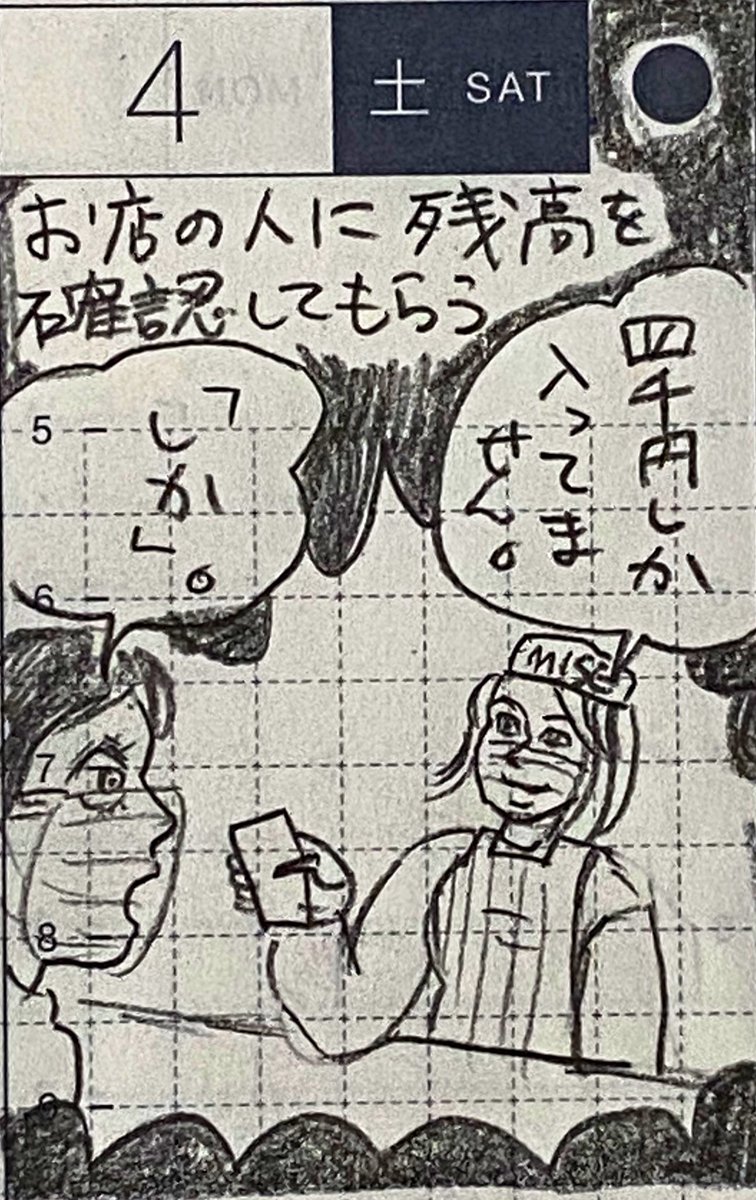 4
土 SAT
お店の人に残高を
確認してもらう
四千円しか
入ってま
せん。
「しか」。
MISE
5
6
7
8
9